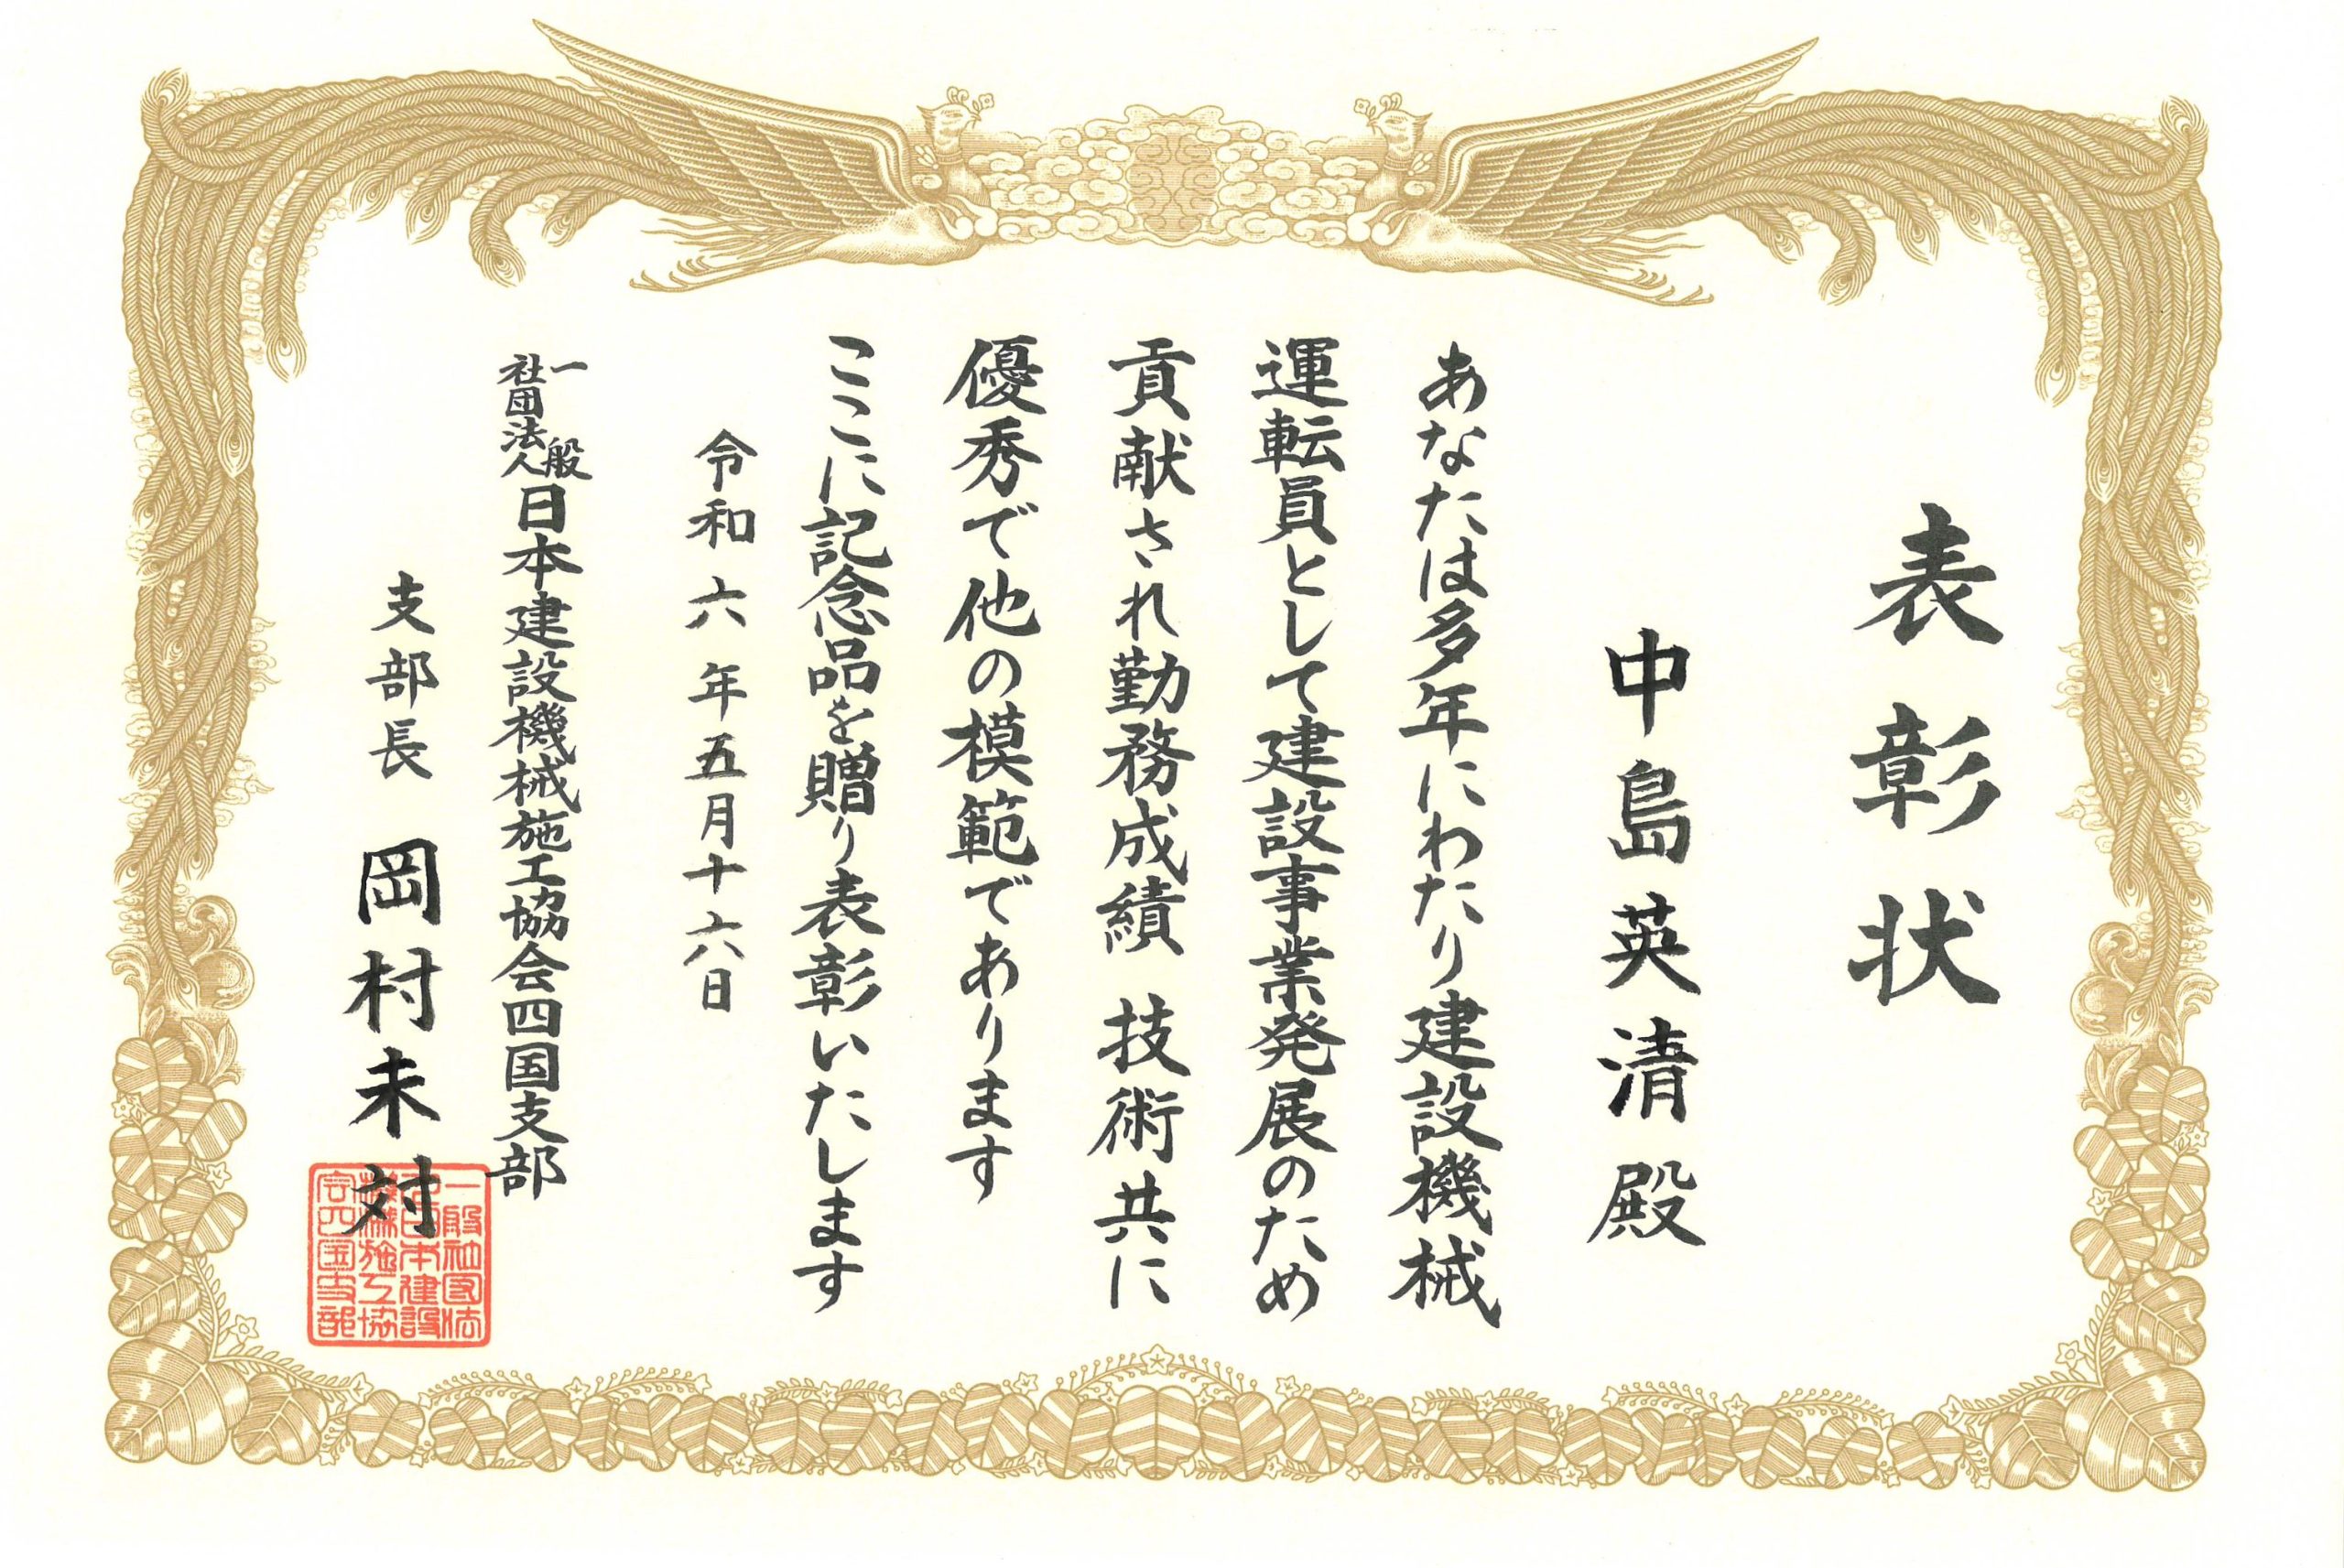 表彰状
中島英清殿
あなたは多年にわたり建設機械
運転員として建設事業発展のため
貢献され勤務成績 技術共に
優秀で他の模範であります
ここに記念品を贈り表彰いたします
令和六年五月十六日
一般社団法人日本建設機械施工協会四国支部
支部長 岡村未対
一般社団法
人日本建設
機械施工協
会四国支部